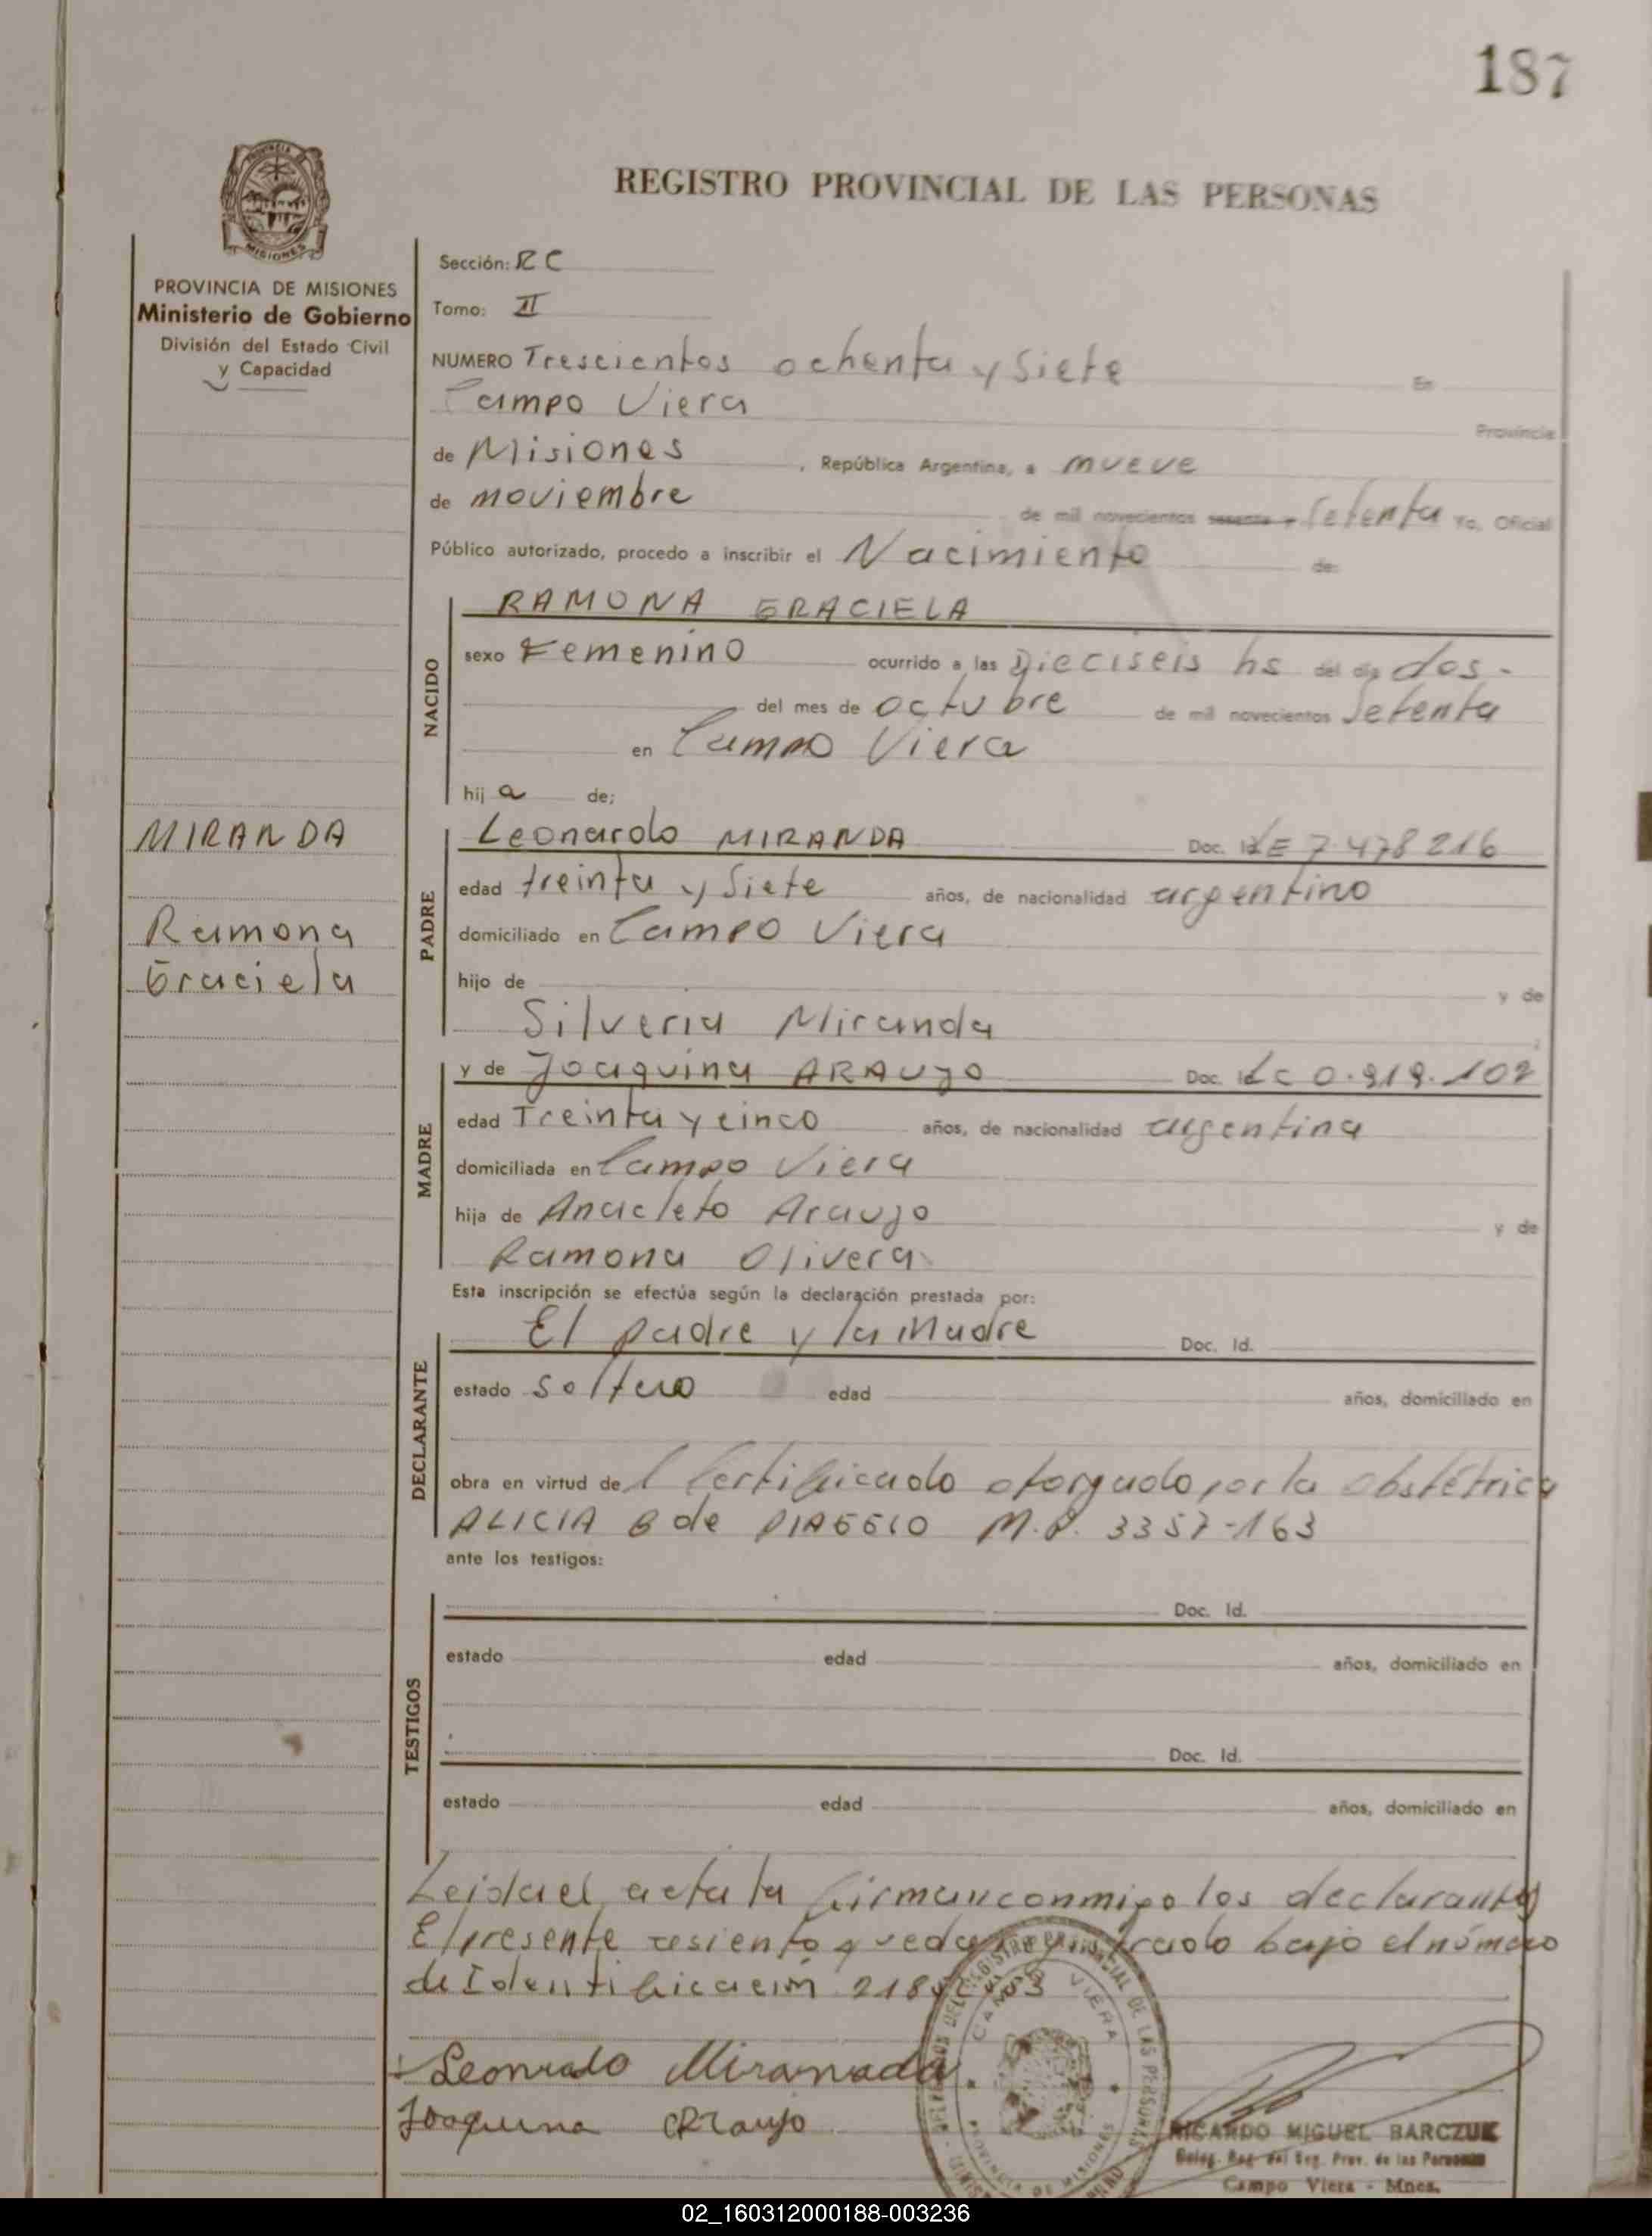 187
REGISTRO PROVINCIAL DE LAS PERSONAS
MISIONES
PROVINCIA DE MISIONES
Ministerio de Gobierno
División del Estado Civil
y Capacidad
Sección: RC
Tomo: II
NUMERO Trescientos ochenta y Siete En
Campo Viera Provincia
de Misiones , República Argentina, a nueve
de noviembre de mil novecientos sesenta y Setenta Yo, Oficial
Público autorizado, procedo a inscribir el Nacimiento de:
NACIDO
RAMONA GRACIELA
sexo Femenino ocurrido a las Dieciseis hs del día dos -
del mes de octubre de mil novecientos Setenta
en Campo Viera
hija de;
MIRANDA
Ramona
Graciela
PADRE
Leonardo MIRANDA Doc. LE 7.478216
edad treinta y Siete años, de nacionalidad argentino
domiciliado en Campo Viera
hijo de y de
Silveria Miranda
MADRE
y de Joaquina ARAUJO Doc. LC 0.919.102
edad Treinta y cinco años, de nacionalidad argentina
domiciliada en Campo Viera
hija de Anacleto Araujo y de
Ramona Olivera
Esta inscripción se efectúa según la declaración prestada por:
DECLARANTE
El padre y la Madre Doc. Id.
estado soltero edad años, domiciliado en
obra en virtud del Certificado otorgado por la obstétrica
ALICIA B de PIAGGIO M.P. 3357-163
ante los testigos:
TESTIGOS
Doc. Id.
estado edad años, domiciliado en
Doc. Id.
estado edad años, domiciliado en
Leida el acta la firman conmigo los declarantes
El presente asiento queda bajo el número
de Identificación
Leonrado Miranada
Joaquina ARaujo
CAMPO VIERA
PROVINCIA DE MISIONES
RICARDO MIGUEL BARCZUK
Deleg. Reg. del Reg. Prov. de las Personas
Campo Viera - Mnes.
02_160312000188-003236